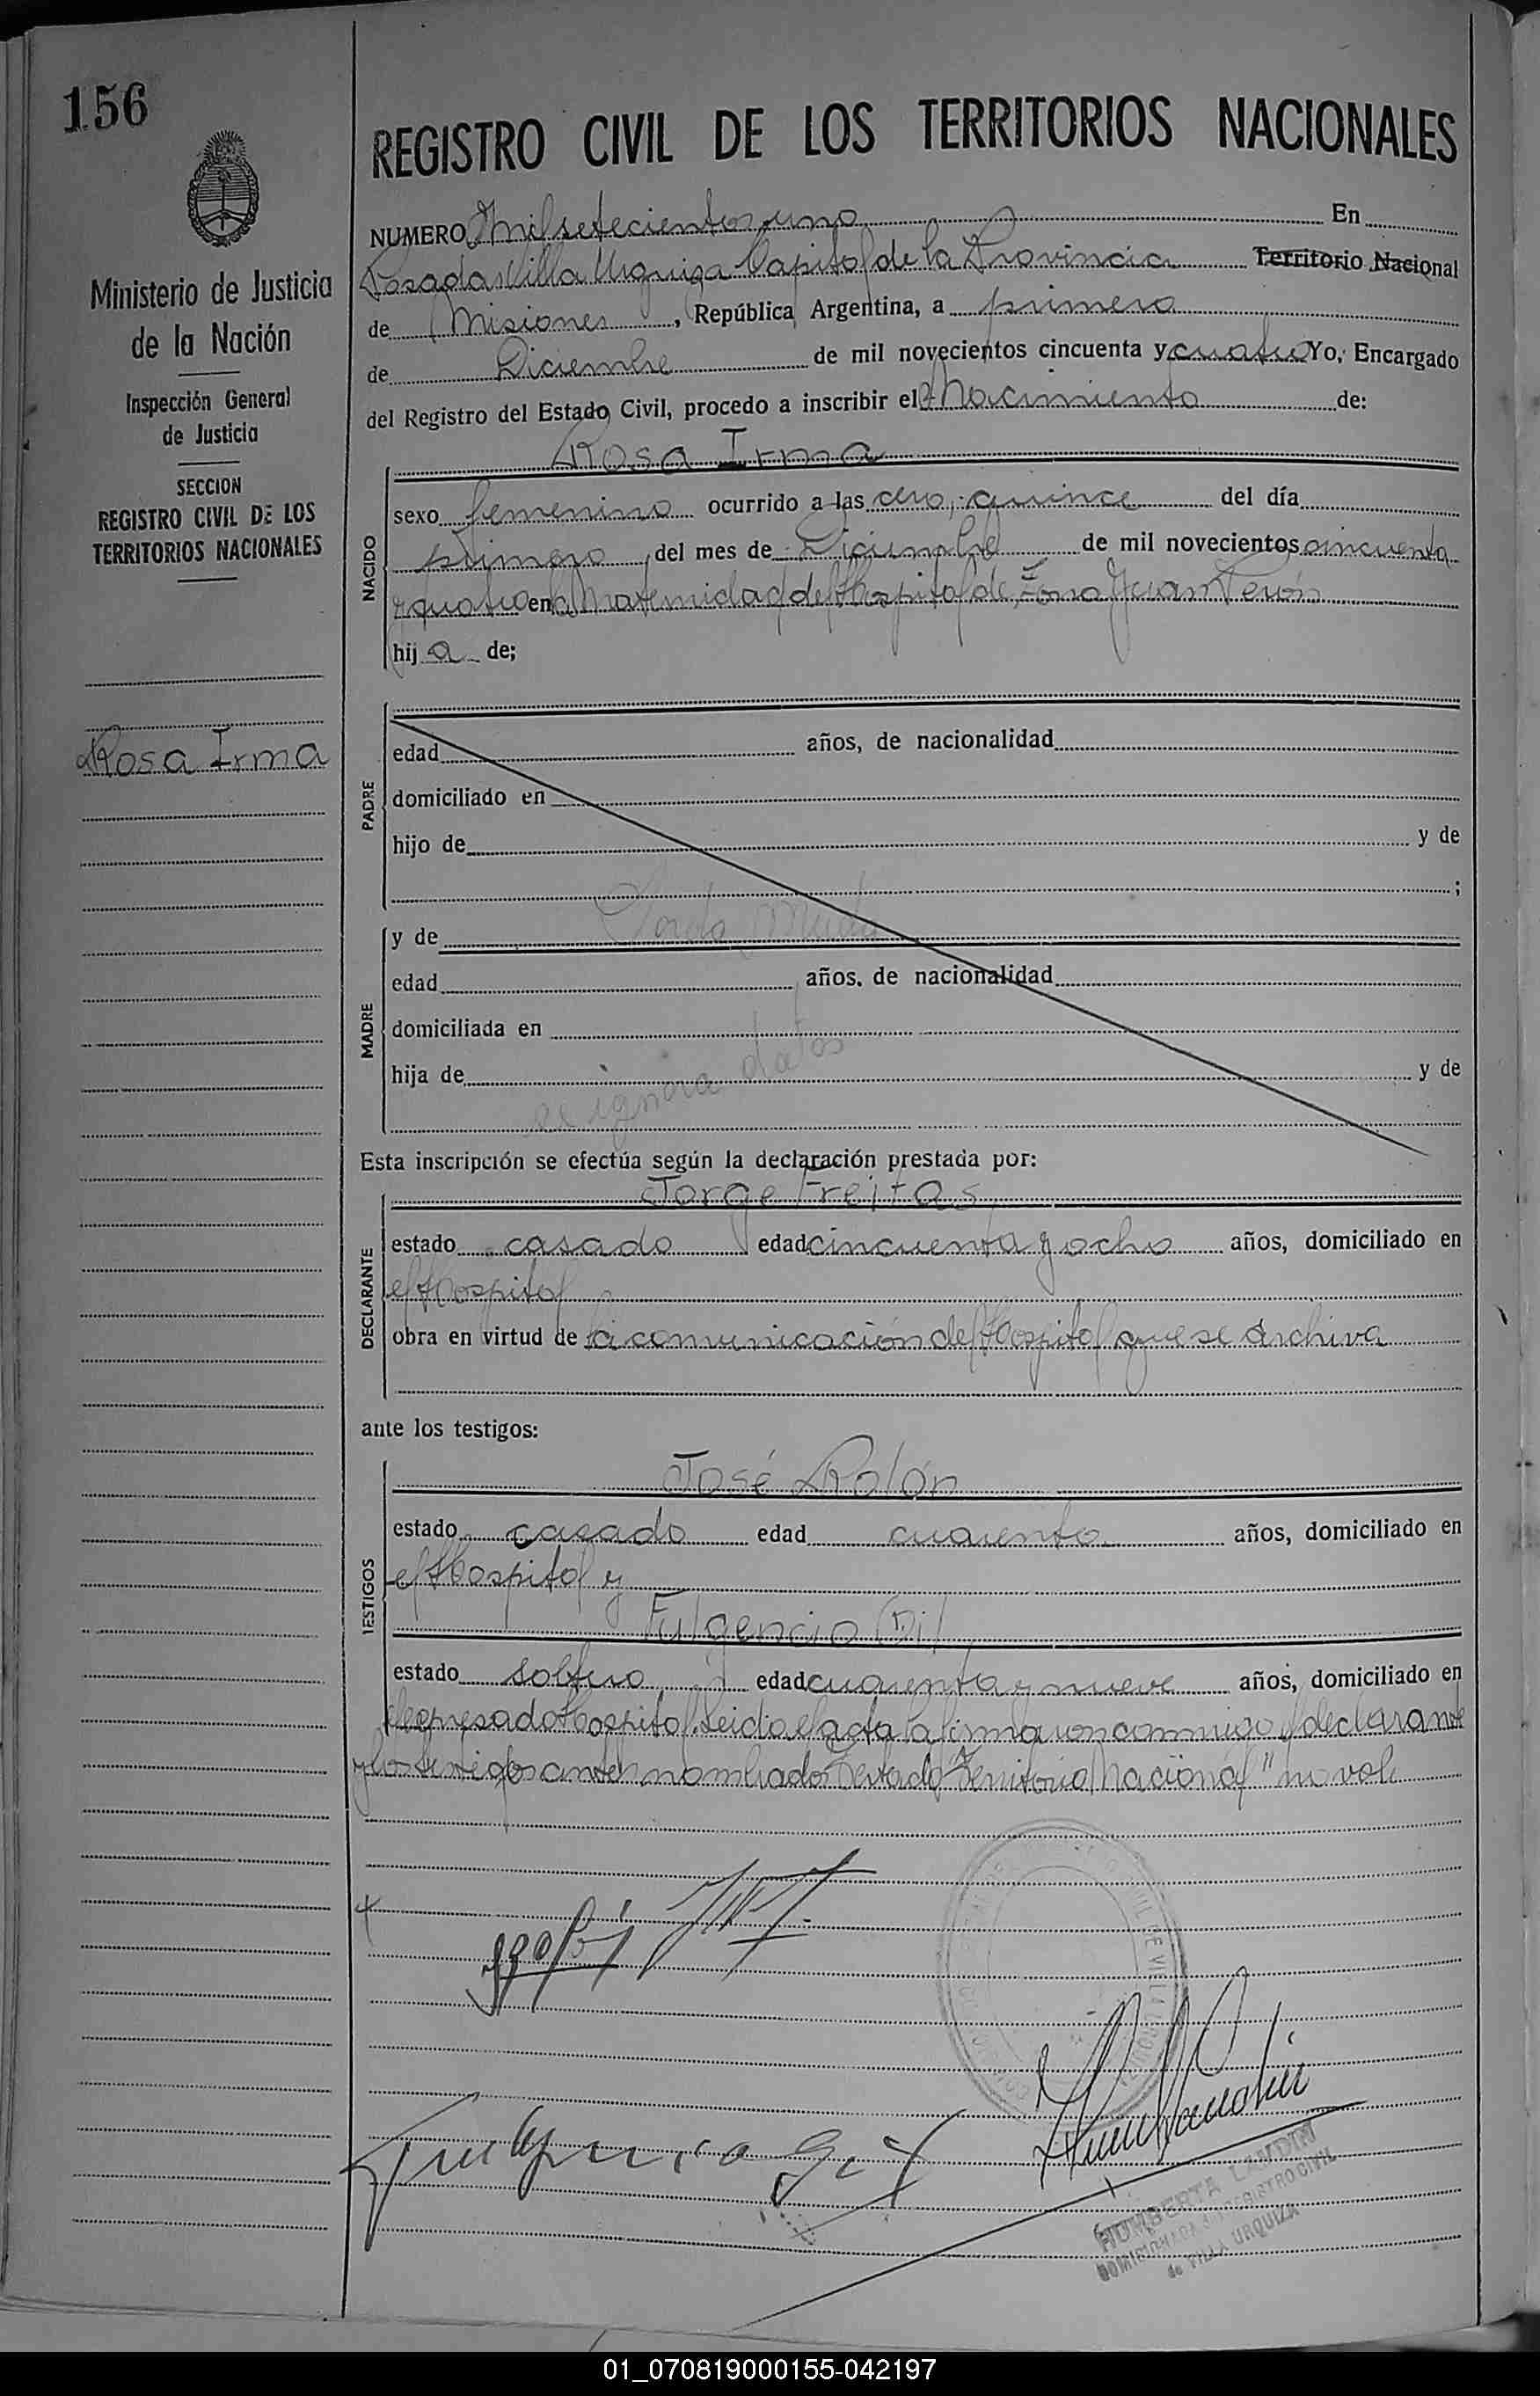 156
REGISTRO CIVIL DE LOS TERRITORIOS NACIONALES
Ministerio de Justicia
de la Nación
Inspección General
de Justicia
SECCION
REGISTRO CIVIL DE LOS
TERRITORIOS NACIONALES
Rosa Irma
NUMERO Mil setecientos uno En
Posadas Villa Urquiza Capital de la Provincia Territorio Nacional
de Misiones, República Argentina, a primero
de Diciembre de mil novecientos cincuenta y cuatro Yo, Encargado
del Registro del Estado Civil, procedo a inscribir el Nacimiento de:
Rosa Irma
NACIDO
sexo femenino ocurrido a las cero, quince del día
primero del mes de Diciembre de mil novecientos cincuenta
y cuatro en la Maternidad del Hospital de Zona Juan Perón
hij a de;
PADRE
edad años, de nacionalidad
domiciliado en
hijo de y de
;
MADRE
y de Sorda Muda
edad años, de nacionalidad
domiciliada en
hija de y de
se ignora datos
Esta inscripción se efectúa según la declaración prestada por:
Jorge Freitas
DECLARANTE
estado casado edad cincuenta y ocho años, domiciliado en
el Hospital
obra en virtud de la comunicación del Hospital que se archiva
ante los testigos:
José Rolón
TESTIGOS
estado casado edad cuarenta años, domiciliado en
el Hospital y
Fulgencio Gil
estado soltero edad cuarenta y nueve años, domiciliado en
el expresado Hospital. Leida el acta la firma con conmigo el declarante
y los testigos antes nombrados Testado "Territorio Nacional" no vale
Fulgencio Gil
HUMBERTA LANDIN
REGISTRO CIVIL
de VILLA URQUIZA
01_070819000155-042197